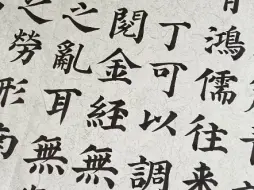 有鴻儒往來
丁可以調
閲金經無
之亂耳無
之勞形南